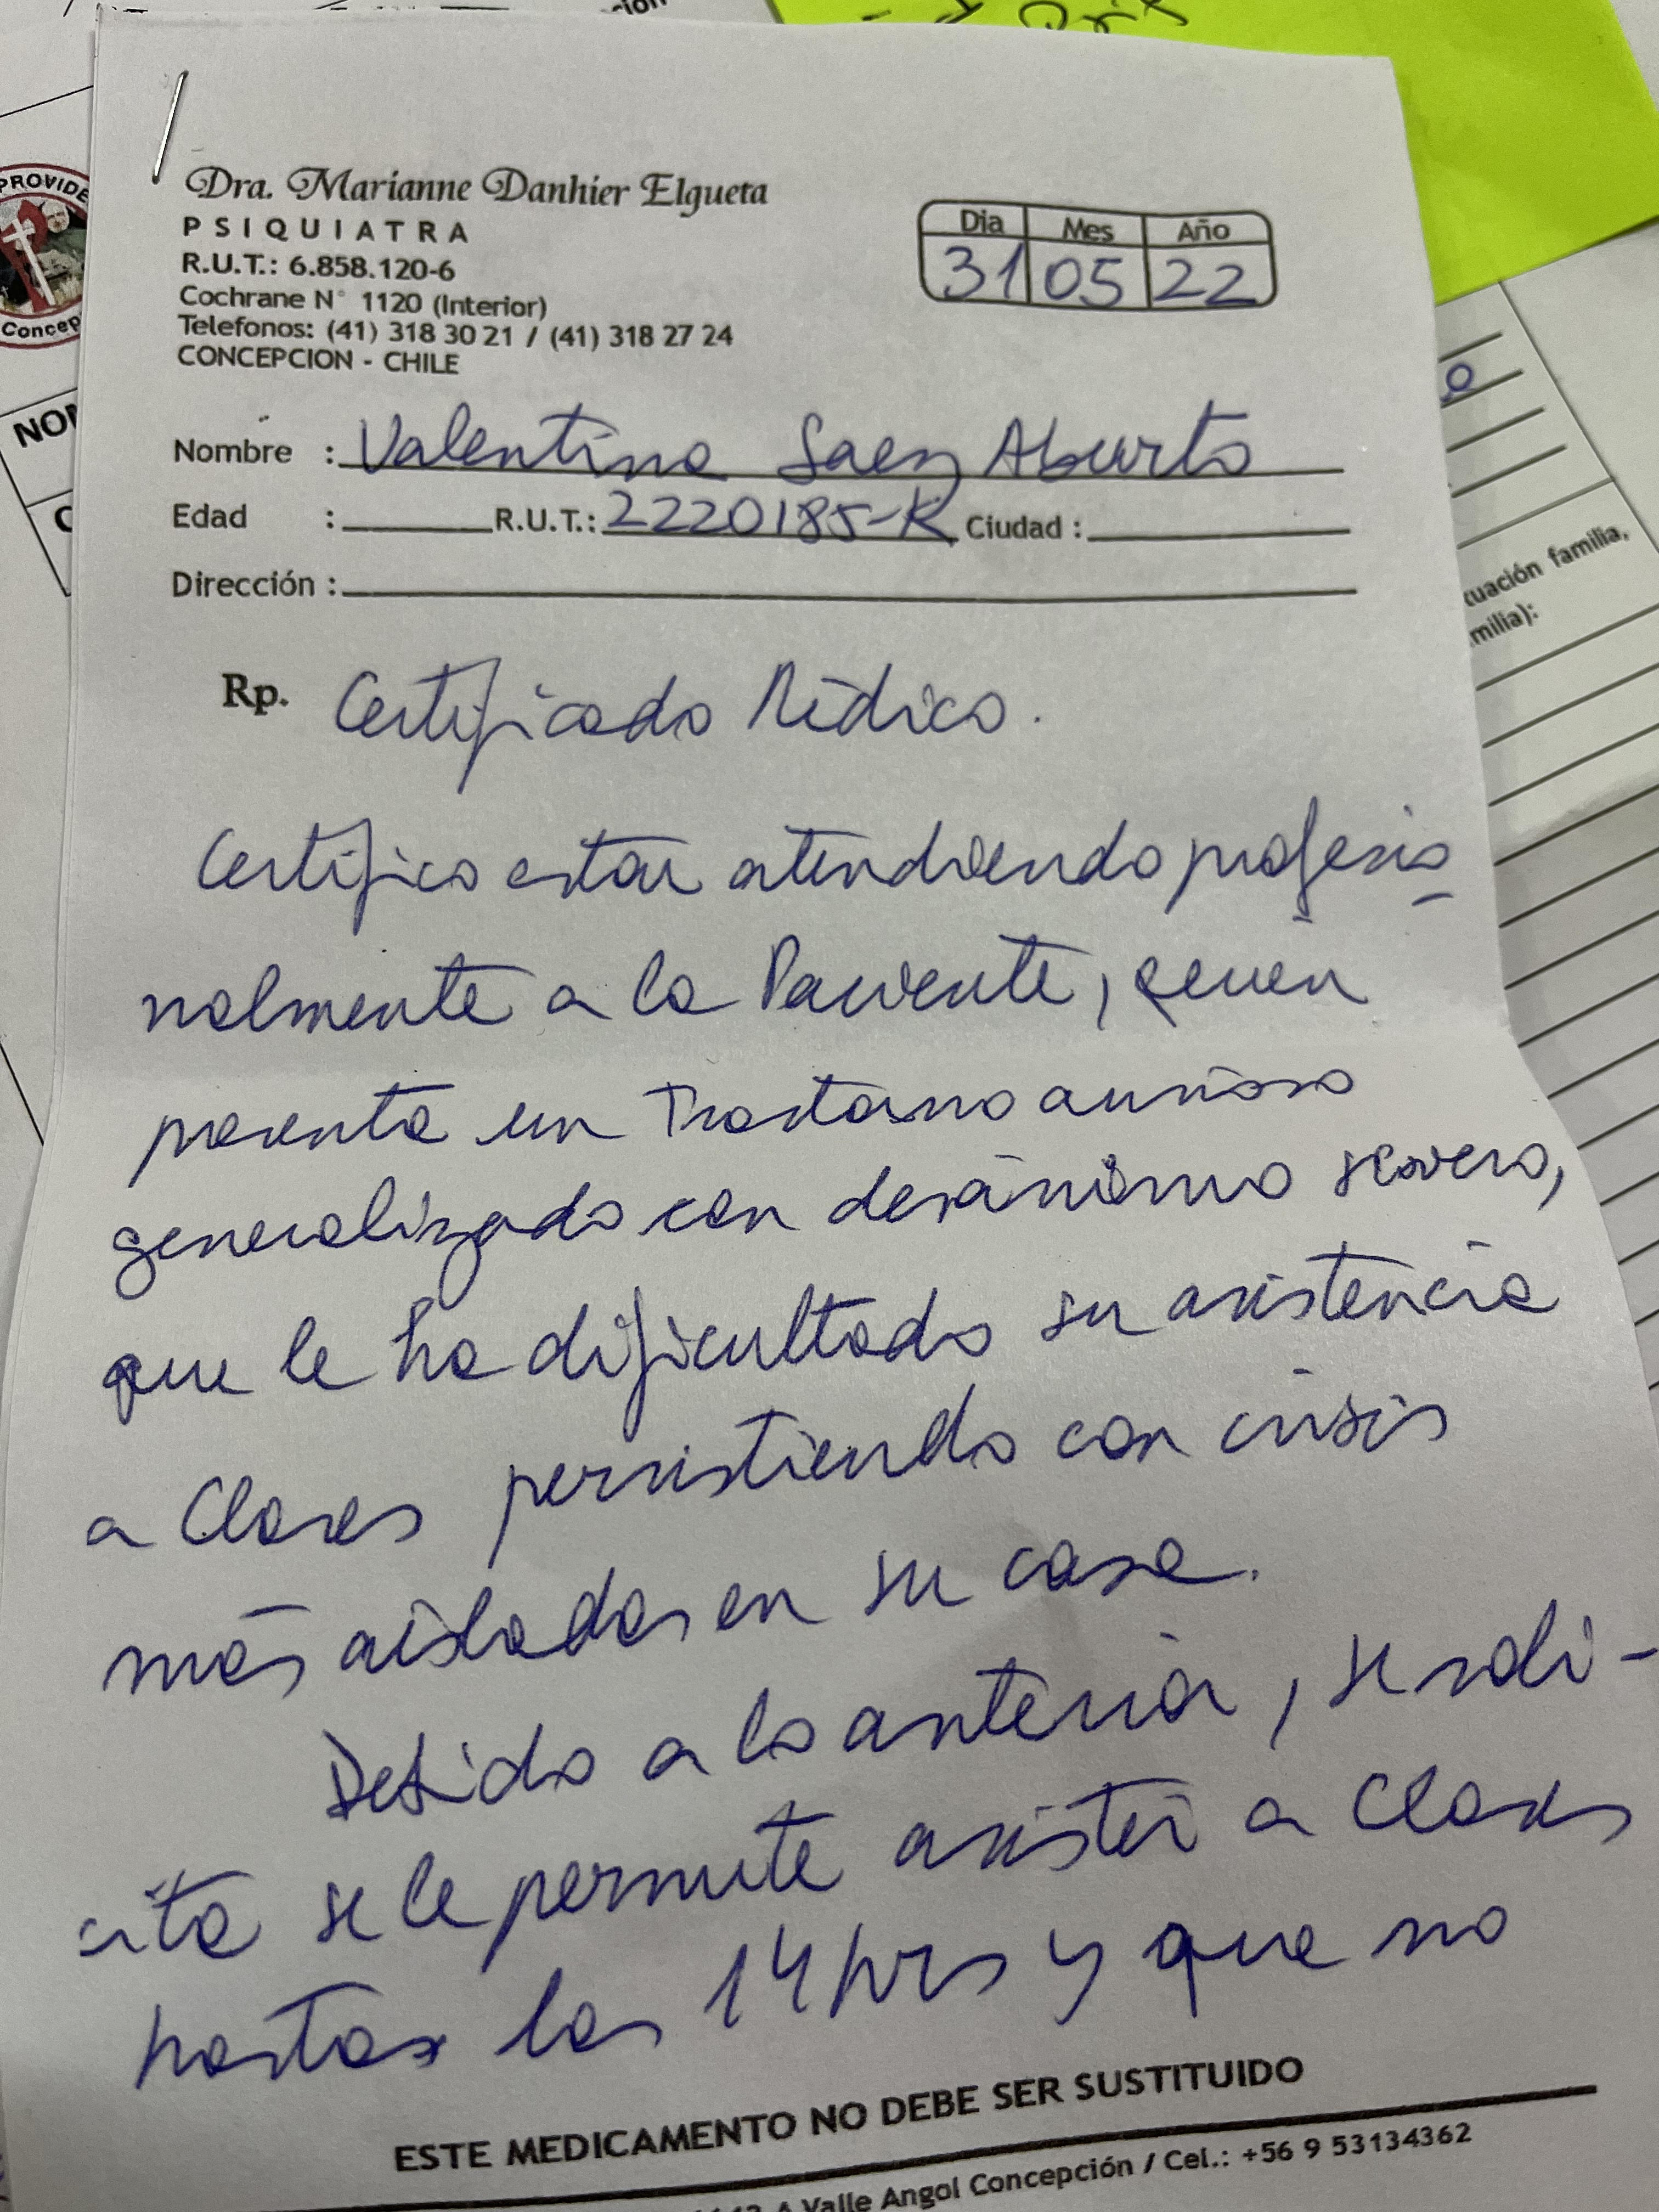 PROVIDE
Concep
Dra. Marianne Danhier Elgueta
PSIQUIATRA
R.U.T.: 6.858.120-6
Cochrane N° 1120 (Interior)
Telefonos: (41) 318 30 21 / (41) 318 27 24
CONCEPCION - CHILE
Dia Mes Año
31 05 22
Nombre : Valentina Saez Aburto
Edad : R.U.T.: 2220185-K Ciudad :
Dirección :
Rp. Certificado Médico.
Certifico estar atendiendo profesio
nalmente a la Paciente, quien
presenta un Trastorno ansioso
generalizado con desánimo severo,
que le ha dificultado su asistencia
a Clases persistiendo con crisis
más aisladas en su casa.
Debido a lo anterior, se soli-
cita se le permite asistir a Clases
hasta las 14 hrs y que no
ESTE MEDICAMENTO NO DEBE SER SUSTITUIDO
A Valle Angol Concepción / Cel.: +56 9 53134362
cuación familia,
milia):